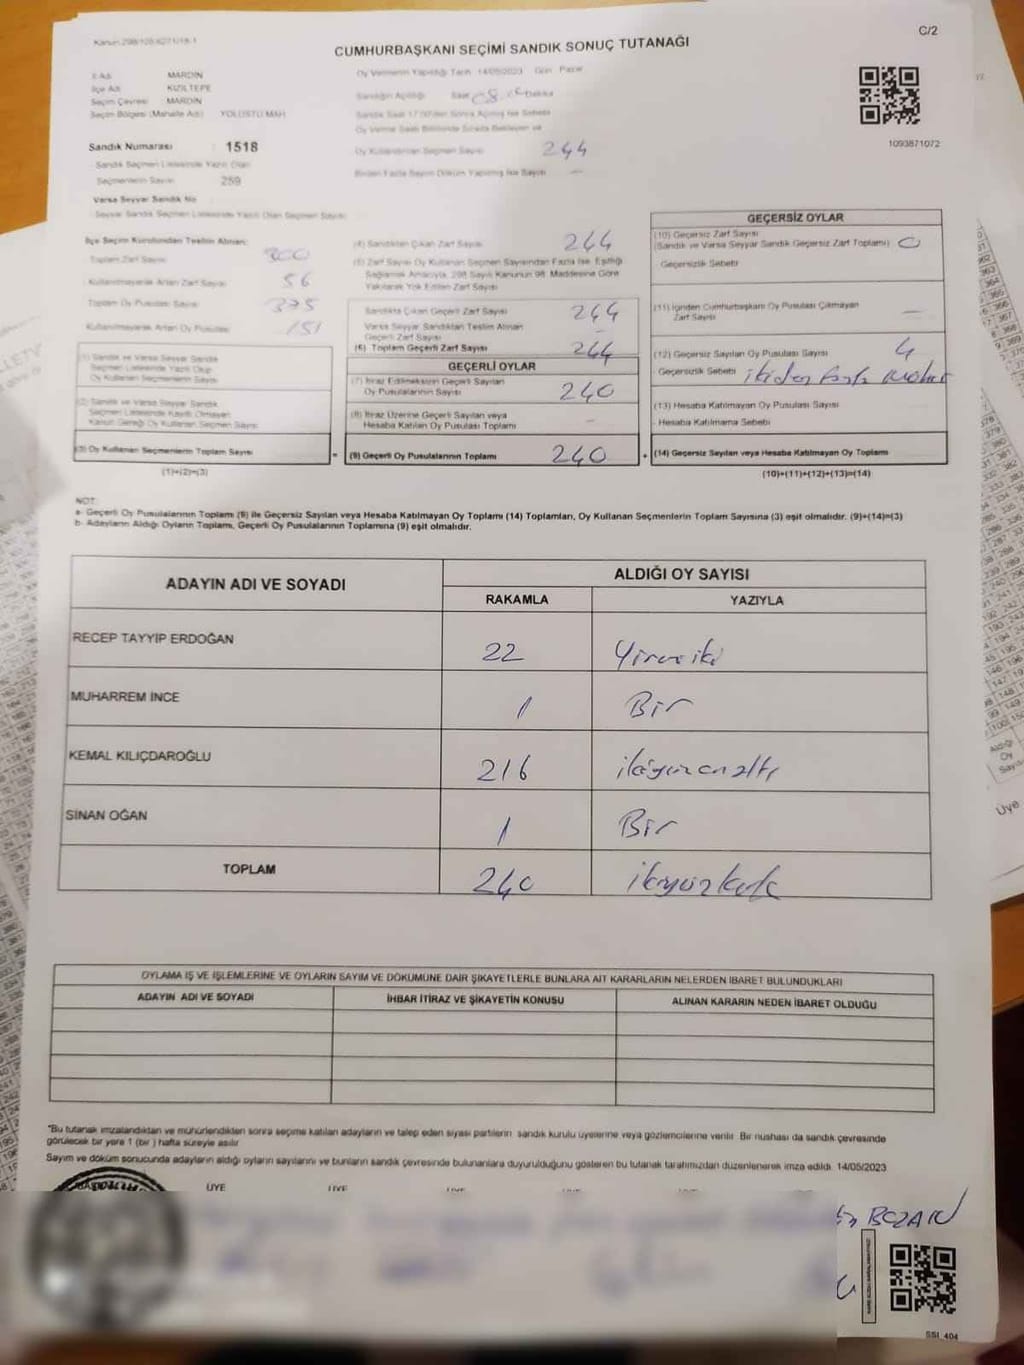 Kanun:298/105,6271/18-1
C/2
CUMHURBAŞKANI SEÇİMİ SANDIK SONUÇ TUTANAĞI
İl Adı MARDİN
İlçe Adı KIZILTEPE
Seçim Çevresi MARDİN
Seçim Bölgesi (Mahalle Adı) YOLÜSTÜ MAH
Sandık Numarası : 1518
Sandık Seçmen Listesinde Yazılı Olan
Seçmenlerin Sayısı 259
Varsa Seyyar Sandık No
Seyyar Sandık Seçmen Listesinde Yazılı Olan Seçmen Sayısı
Oy Vermenin Yapıldığı Tarih 14/05/2023 Gün Pazar
Sandığın Açıldığı Saat 08 Dakika
Sandık Saat 17:00'den Sonra Açılmış İse Sebebi
Oy Verme Saati Bitiminde Sırada Bekleyen ve
Oy Kullandırılan Seçmen Sayısı 244
Birden Fazla Sayım Döküm Yapılmış İse Sayısı —
1093871072
İlçe Seçim Kurulundan Teslim Alınan:
Toplam Zarf Sayısı 300
Kullanılmayarak Artan Zarf Sayısı 56
Toplam Oy Pusulası Sayısı 375
Kullanılmayarak Artan Oy Pusulası 151
(1) Sandık ve Varsa Seyyar Sandık
Seçmen Listesinde Yazılı Olup
Oy Kullanan Seçmenlerin Sayısı
(2) Sandık ve Varsa Seyyar Sandık
Seçmen Listesinde Kayıtlı Olmayan
Kanun Gereği Oy Kullanan Seçmen Sayısı
(3) Oy Kullanan Seçmenlerin Toplam Sayısı
(1)+(2)=(3)
(4) Sandıktan Çıkan Zarf Sayısı 244
(5) Zarf Sayısı Oy Kullanan Seçmen Sayısından Fazla İse, Eşitliği
Sağlamak Amacıyla, 298 Sayılı Kanunun 98. Maddesine Göre
Yakılarak Yok Edilen Zarf Sayısı
Sandıkta Çıkan Geçerli Zarf Sayısı 244
Varsa Seyyar Sandıktan Teslim Alınan
Geçerli Zarf Sayısı —
(6) Toplam Geçerli Zarf Sayısı 244
GEÇERLİ OYLAR
(7) İtiraz Edilmeksizin Geçerli Sayılan
Oy Pusulalarının Sayısı 240
(8) İtiraz Üzerine Geçerli Sayılan veya
Hesaba Katılan Oy Pusulası Toplamı —
= (9) Geçerli Oy Pusulalarının Toplamı 240
GEÇERSİZ OYLAR
(10) Geçersiz Zarf Sayısı
(Sandık ve Varsa Seyyar Sandık Geçersiz Zarf Toplamı) 0
Geçersizlik Sebebi
(11) İçinden Cumhurbaşkanı Oy Pusulası Çıkmayan
Zarf Sayısı —
(12) Geçersiz Sayılan Oy Pusulası Sayısı 4
Geçersizlik Sebebi ikiden fazla mühür
(13) Hesaba Katılmayan Oy Pusulası Sayısı
Hesaba Katılmama Sebebi
+ (14) Geçersiz Sayılan veya Hesaba Katılmayan Oy Toplamı
(10)+(11)+(12)+(13)=(14)
NOT:
a- Geçerli Oy Pusulalarının Toplamı (9) ile Geçersiz Sayılan veya Hesaba Katılmayan Oy Toplamı (14) Toplamları, Oy Kullanan Seçmenlerin Toplam Sayısına (3) eşit olmalıdır. (9)+(14)=(3)
b- Adayların Aldığı Oyların Toplamı, Geçerli Oy Pusulalarının Toplamına (9) eşit olmalıdır.
ADAYIN ADI VE SOYADI
ALDIĞI OY SAYISI
RAKAMLA YAZIYLA
RECEP TAYYİP ERDOĞAN 22 Yirmi iki
MUHARREM İNCE 1 Bir
KEMAL KILIÇDAROĞLU 216 ikiyüzonaltı
SİNAN OĞAN 1 Bir
TOPLAM 240 ikiyüzkırk
OYLAMA İŞ VE İŞLEMLERİNE VE OYLARIN SAYIM VE DÖKÜMÜNE DAİR ŞİKAYETLERLE BUNLARA AİT KARARLARIN NELERDEN İBARET BULUNDUKLARI
ADAYIN ADI VE SOYADI İHBAR İTİRAZ VE ŞİKAYETİN KONUSU ALINAN KARARIN NEDEN İBARET OLDUĞU
*Bu tutanak imzalandıktan ve mühürlendikten sonra seçime katılan adayların ve talep eden siyasi partilerin sandık kurulu üyelerine veya gözlemcilerine verilir. Bir nüshası da sandık çevresinde
görülecek bir yere 1 (bir) hafta süreyle asılır.
Sayım ve döküm sonucunda adayların aldığı oyların sayılarını ve bunların sandık çevresinde bulunanlara duyurulduğunu gösteren bu tutanak tarafımızdan düzenlenerek imza edildi. 14/05/2023
ÜYE ÜYE
BOZAN
SSI_404